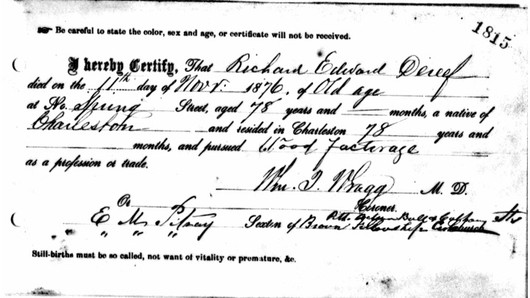 1815
Be careful to state the color, sex and age, or certificate will not be received.
I hereby Certify, That Richard Edward Dereef
died on the 11th day of Novr. 1876, of Old age
at No. Spring Street, aged 78 years and months, a native of
Charleston and resided in Charleston 78 years and
months, and pursued Wood Factorage
as a profession or trade.
Wm. T. Wragg M. D.
Or Coroner.
E M Sexton of Brown Fellowship
" " "
Still-births must be so called, not want of vitality or premature, &c.